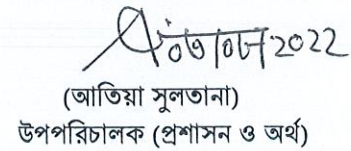 2022
(আতিয়া সুলতানা)
উপপরিচালক (প্রশাসন ও অর্থ)